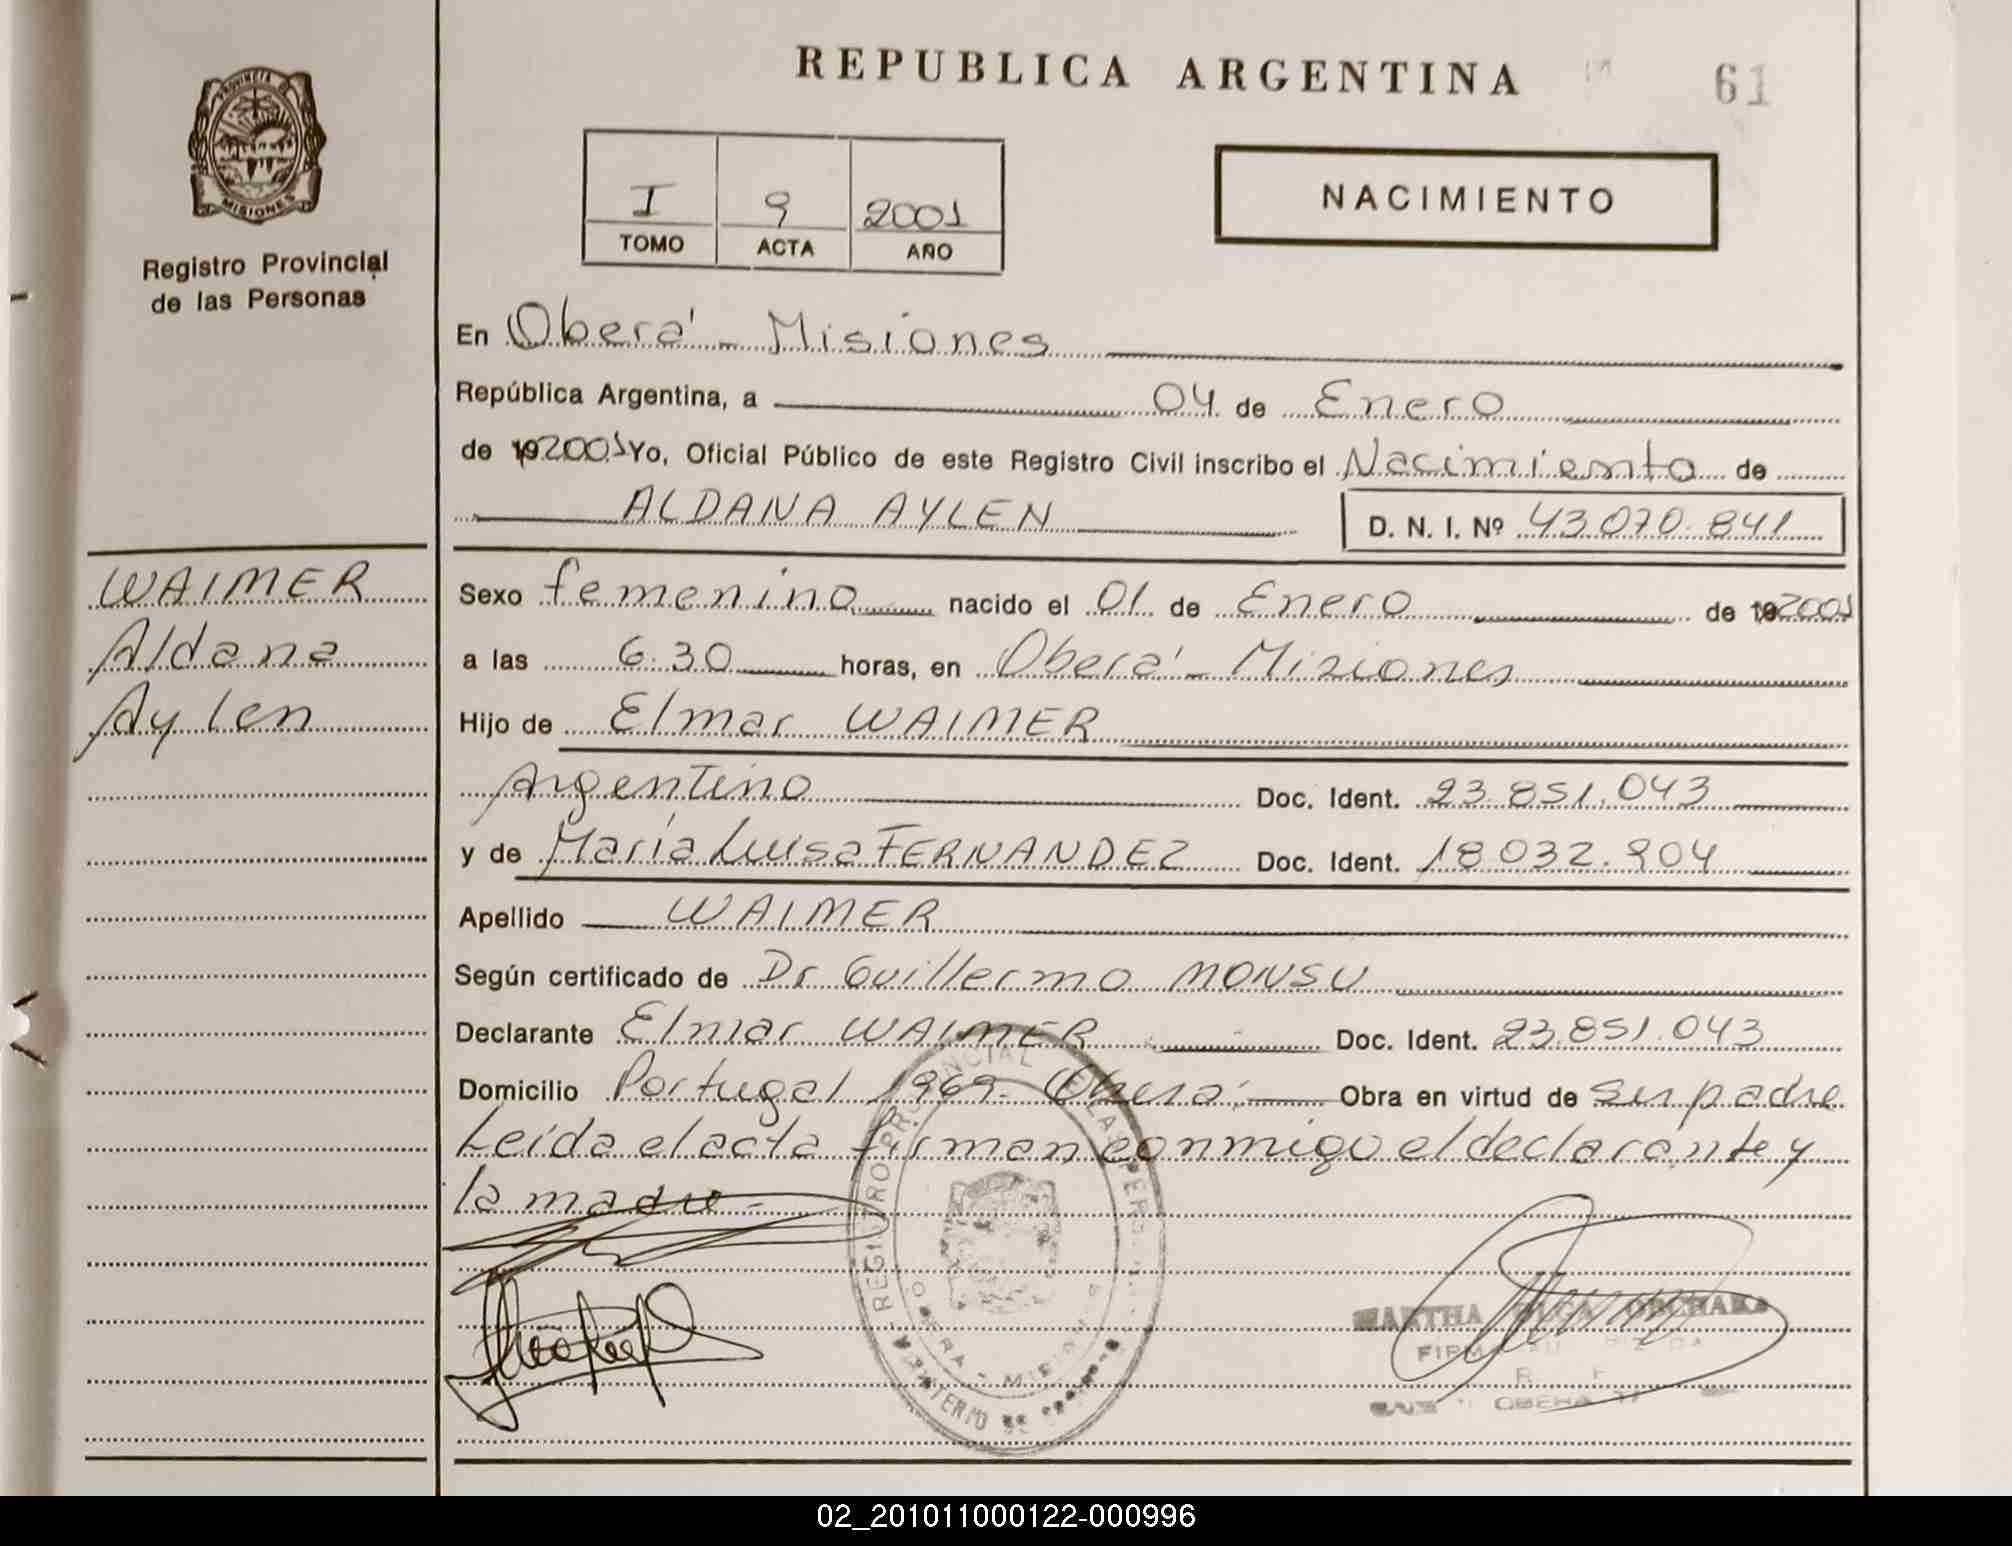 REPUBLICA ARGENTINA
61
PROVINCIA DE
MISIONES
Registro Provincial
de las Personas
I 9 2001
TOMO ACTA AÑO
NACIMIENTO
En Oberá - Misiones
República Argentina, a 04 de Enero
de 19 2001 Yo, Oficial Público de este Registro Civil inscribo el Nacimiento de
ALDANA AYLEN D. N. I. Nº 43.070.841
WAIMER
Aldana
Aylen
Sexo femenino nacido el 01 de Enero de 19 2001
a las 6.30 horas, en Oberá - Misiones
Hijo de Elmar WAIMER
Argentino Doc. Ident. 23.851.043
y de María Luisa FERNANDEZ Doc. Ident. 18.032.904
Apellido WAIMER
Según certificado de Dr Guillermo MONSU
Declarante Elmar WAIMER Doc. Ident. 23.851.043
Domicilio Portugal 1969 - Oberá Obra en virtud de ser padre
Leída el acta firman conmigo el declarante y
la madre -
REGISTRO PROVINCIAL DE LAS PERSONAS
OBERA - MISIONES
MINISTERIO DE
MARTHA
FIRMA AUTORIZADA
OBERA
02_201011000122-000996